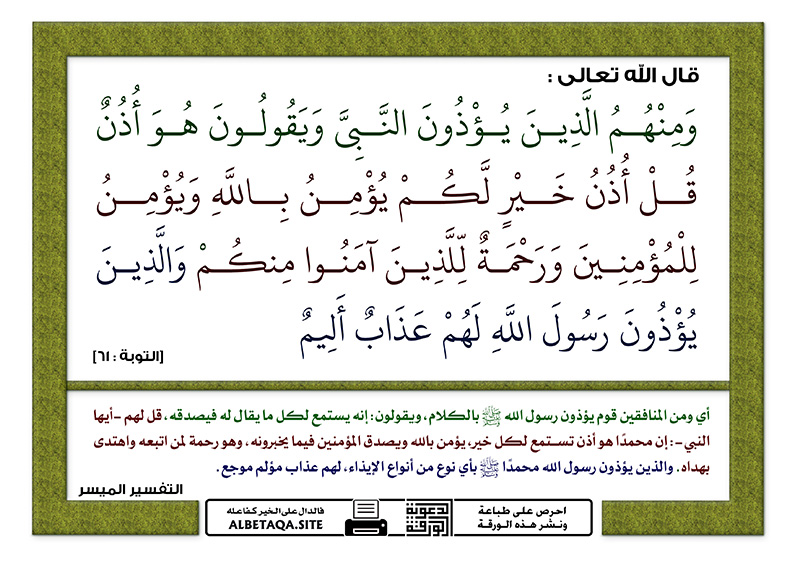 قال الله تعالى :
وَمِنْهُمُ الَّذِينَ يُؤْذُونَ النَّبِيَّ وَيَقُولُونَ هُوَ أُذُنٌ
قُلْ أُذُنُ خَيْرٍ لَّكُمْ يُؤْمِنُ بِاللَّهِ وَيُؤْمِنُ
لِلْمُؤْمِنِينَ وَرَحْمَةٌ لِّلَّذِينَ آمَنُوا مِنكُمْ وَالَّذِينَ
يُؤْذُونَ رَسُولَ اللَّهِ لَهُمْ عَذَابٌ أَلِيمٌ
[التوبة : ٦١]
أي ومن المنافقين قوم يؤذون رسول الله ﷺ بالكلام، ويقولون: إنه يستمع لكل ما يقال له فيصدقه، قل لهم -أيها
النبي-: إن محمدًا هو أذن تستمع لكل خير، يؤمن بالله ويصدق المؤمنين فيما يخبرونه، وهو رحمة لمن اتبعه واهتدى
بهداه. والذين يؤذون رسول الله محمدًا ﷺ بأي نوع من أنواع الإيذاء، لهم عذاب مؤلم موجع.
التفسير الميسر
احرص على طباعة
ونشر هذه الورقة
الورقة
الدعوية
فالدال على الخير كفاعله
ALBETAQA.SITE